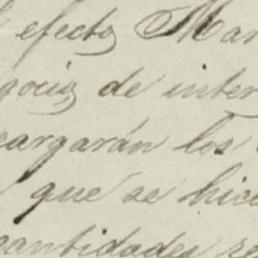 efecto Mar
gocio de inter
cargarán los
que se hici
cantidades se